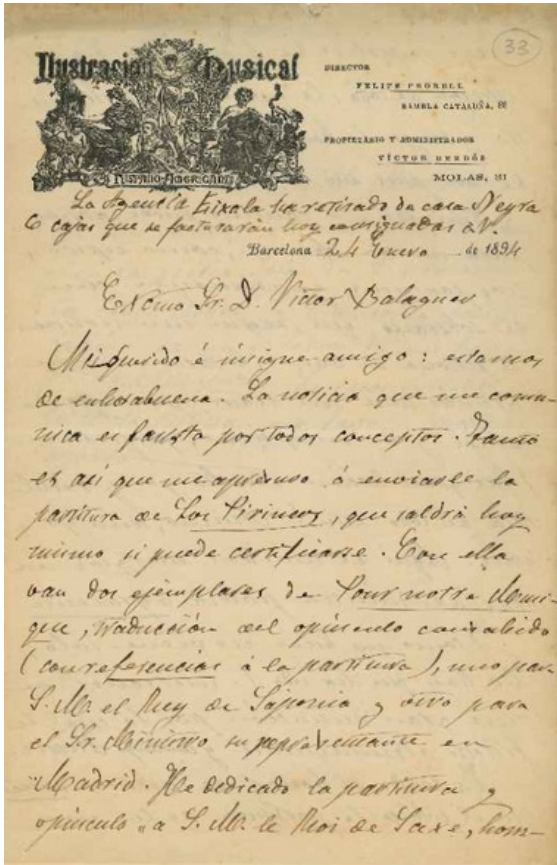 33
Ilustración Musical
HISPANO-AMERICANA
DIRECTOR
FELIPE PEDRELL
RAMBLA CATALUÑA,
PROPIETARIO Y ADMINISTRADOR
VÍCTOR BERDÓS
MOLAS, 31
La Agencia ha retirado de casa Neyra
6 cajas que se facturarán hoy consignadas á V.
Barcelona 24 Enero de 1894
Excmo Sr. D. Victor Balaguer
Mi querido é insigne amigo: estamos
de enhorabuena. La noticia que me comu-
nica es fausta por todos conceptos. Tanto
es así que me apresuro á enviarle la
partitura de Los Pirineos, que saldrá hoy
mismo si puede certificarse. Con ella
van dos ejemplares de Pour notre Musi-
que, traducción del opúsculo consabido
(con referencias á la partitura), uno para
S. M. el Rey de Sajonia y otro para
el Sr. Ministro su representante en
Madrid. He dedicado la partitura y
opúsculo "a S. M. le Roi de Saxe, hom-